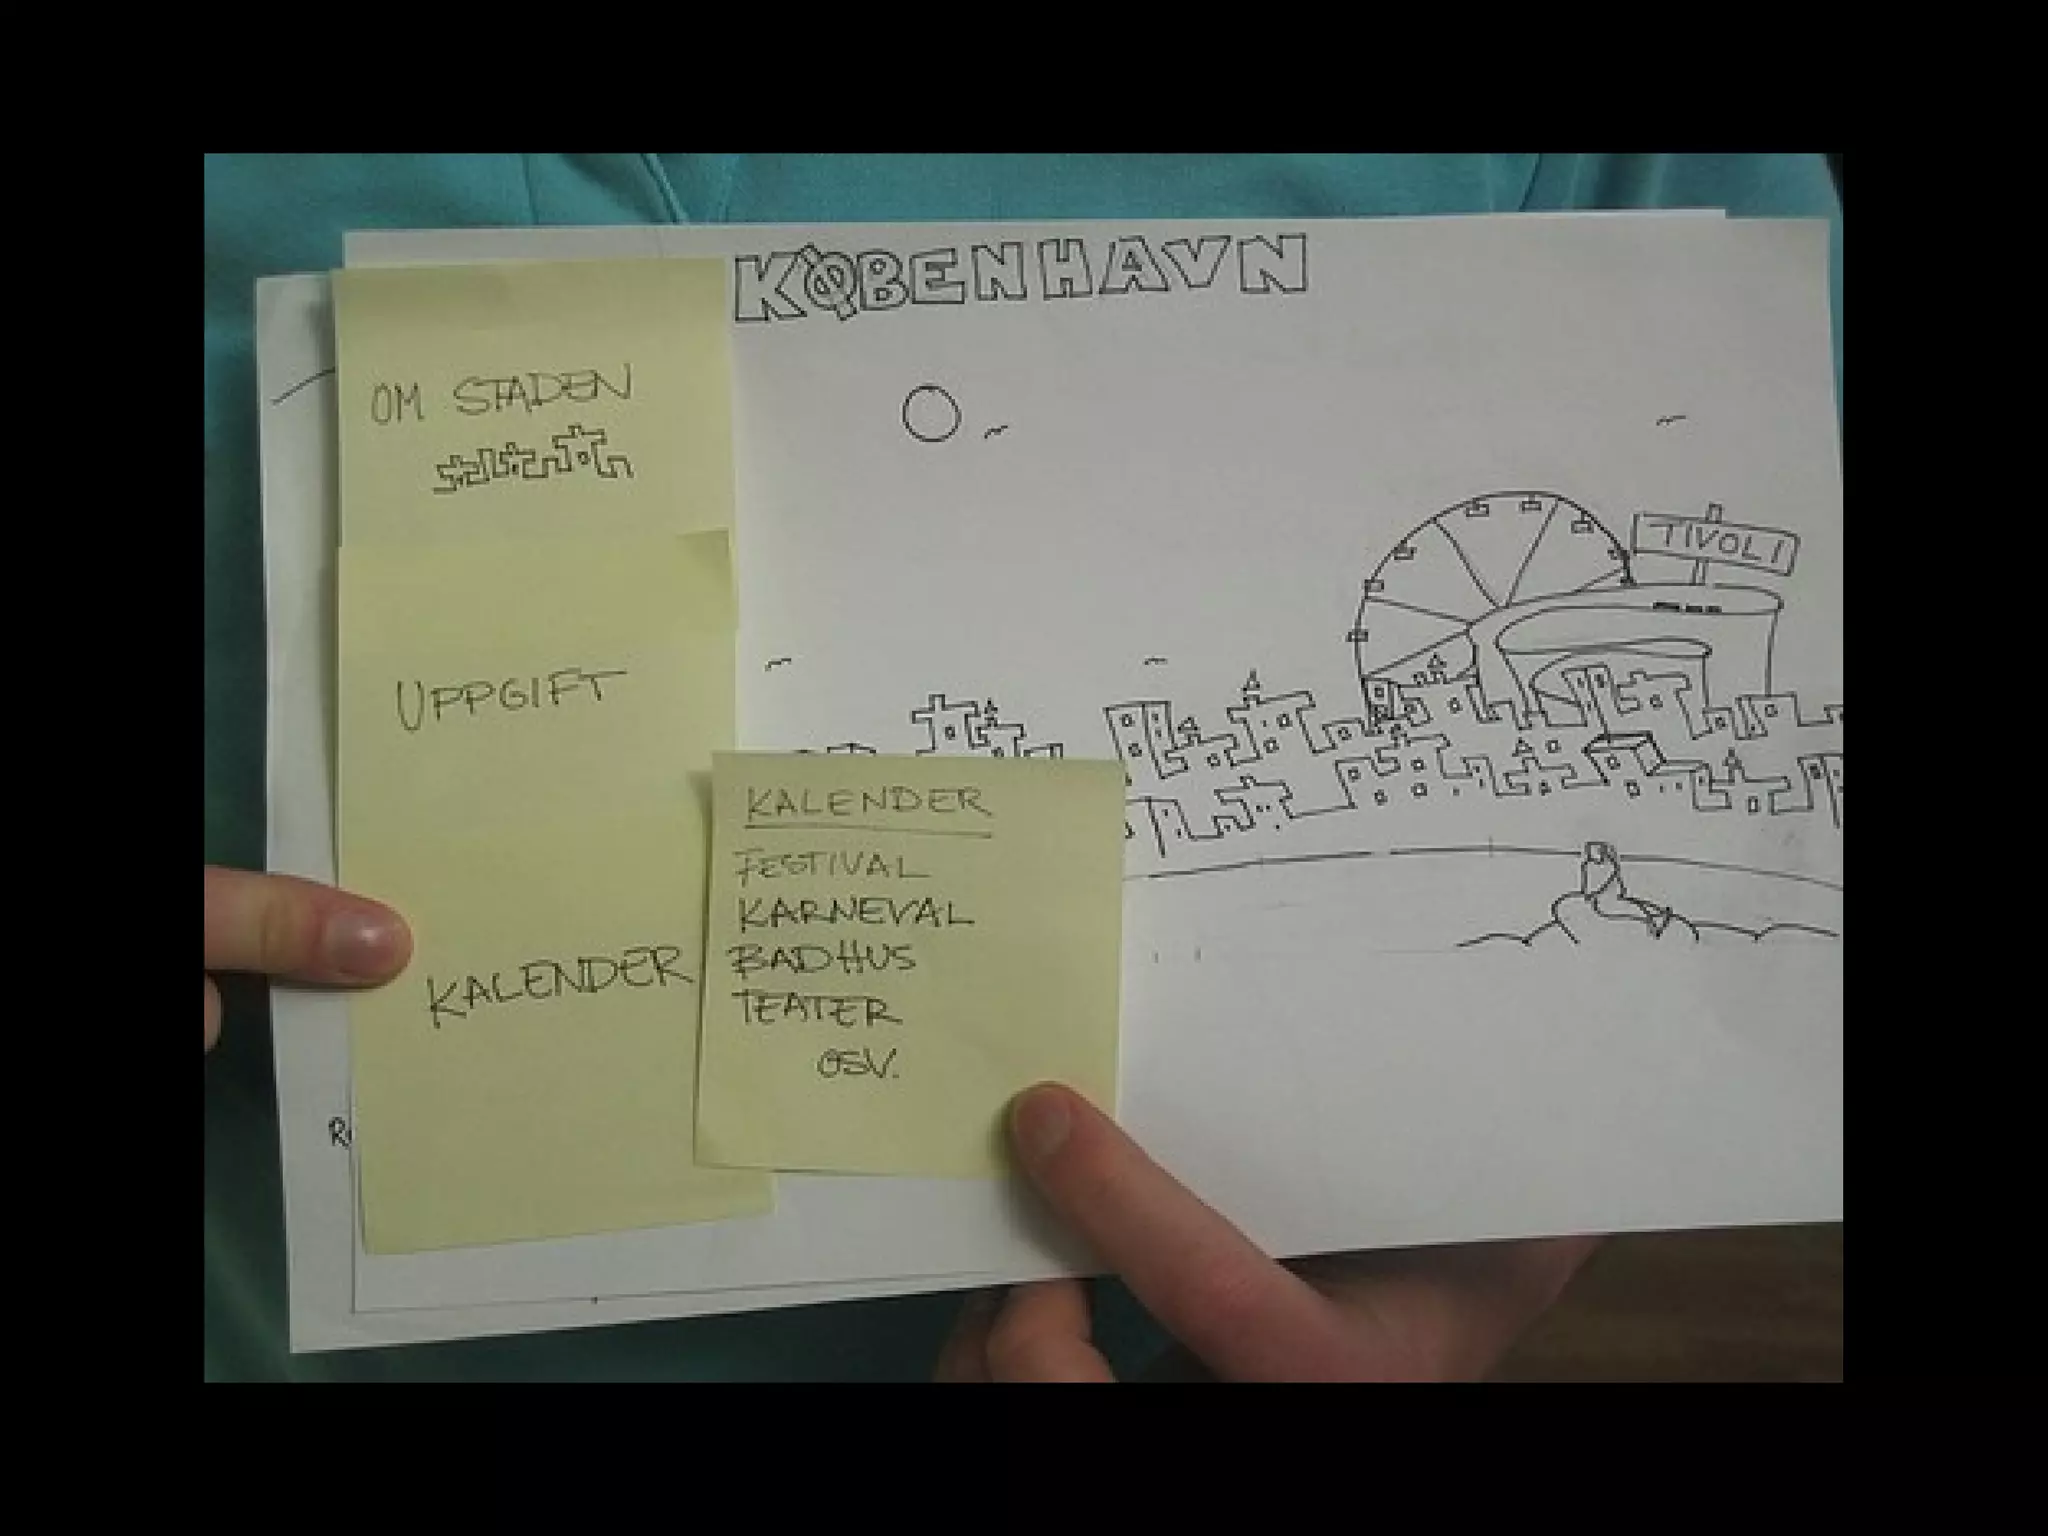 KØBENHAVN
OM STADEN
TIVOLI
UPPGIFT
KALENDER
KALENDER
FESTIVAL
KARNEVAL
BADHUS
TEATER
OSV.